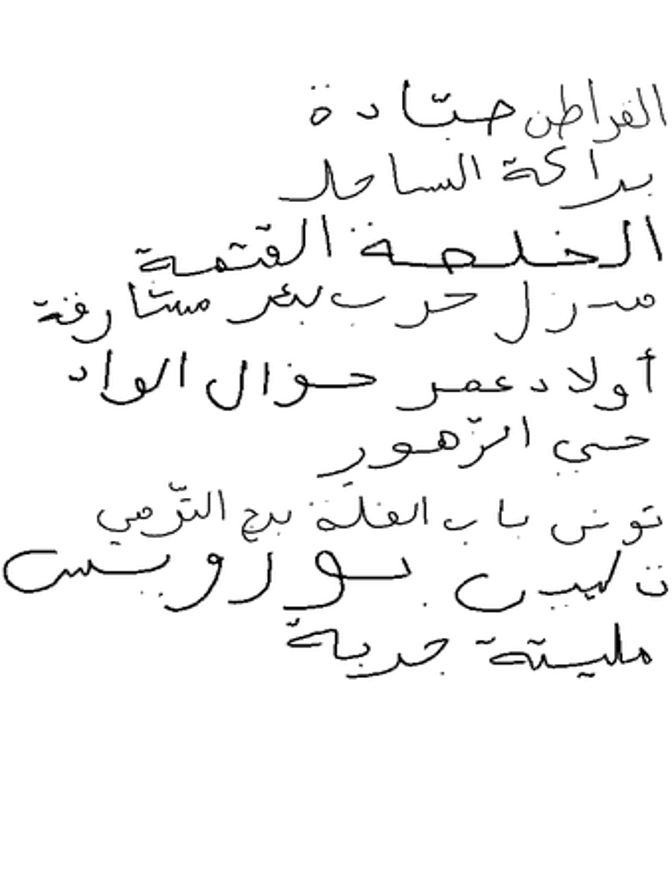 القراطن حبّادة
براكة الساحل
الخلصة القتمة
منزل حرب بئر مشارقة
أولاد عمر حوال الواد
حي الزّهور
تونس باب الفلة برج التّرمي
تكيبن بورويس
مليتة جربة